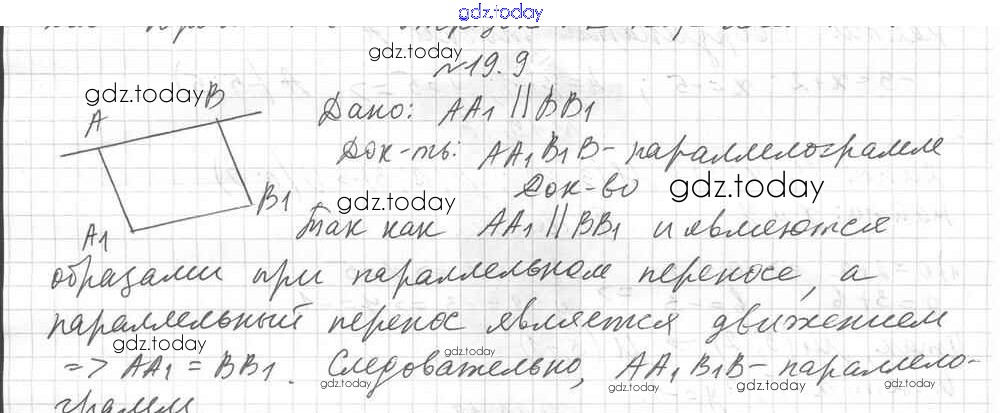 gdz.today
gdz.today
№19.9
gdz.today
A B
Дано: AA1 || BB1
Док-ть: AA1B1B - параллелограмм
Док-во gdz.today
gdz.today
A1 B1
Так как AA1 || BB1 и являются
образами при параллельном переносе, а
параллельный перенос является движением
gdz.today
gdz.today
=> AA1 = BB1. Следовательно, AA1B1B - параллело-
gdz.today gdz.today gdz.today gdz.today
грамм